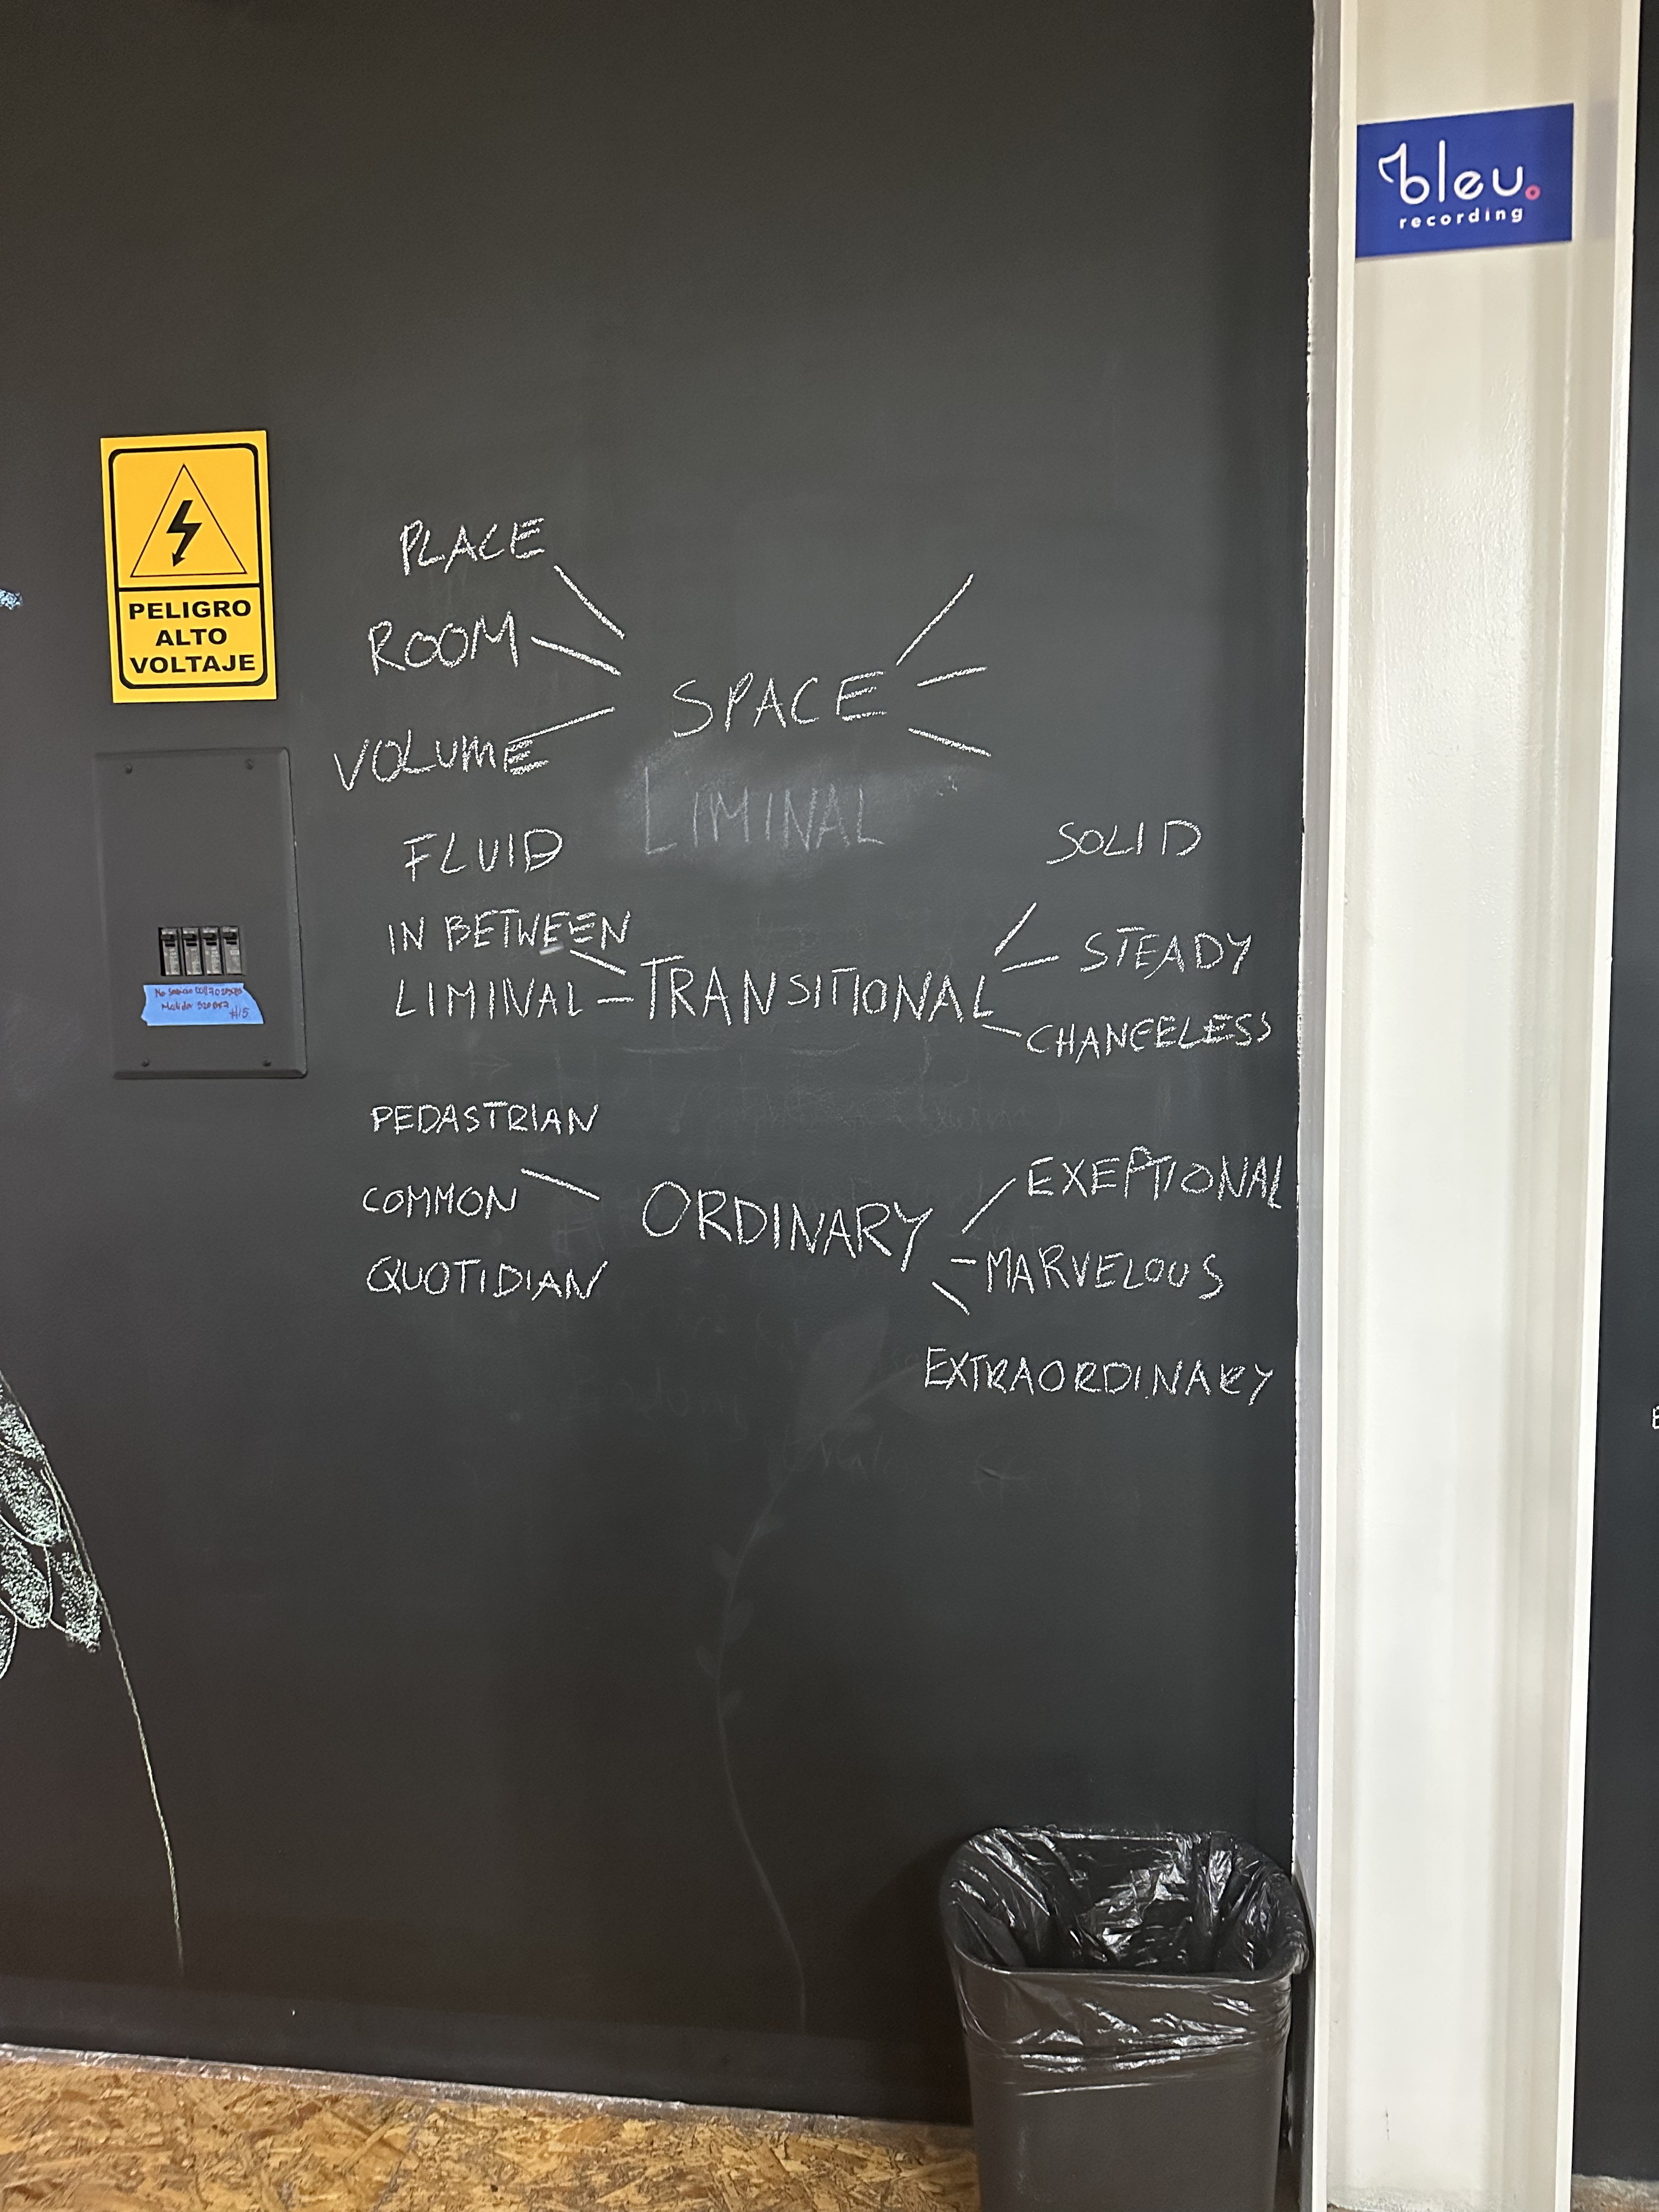 bleu.
recording
PELIGRO
ALTO
VOLTAJE
PLACE
ROOM
VOLUME
SPACE
LIMINAL
FLUID
IN BETWEEN
LIMINAL
TRANSITIONAL
SOLID
STEADY
CHANGELESS
PEDASTRIAN
COMMON
QUOTIDIAN
ORDINARY
EXEPTIONAL
MARVELOUS
EXTRAORDINARY
#15